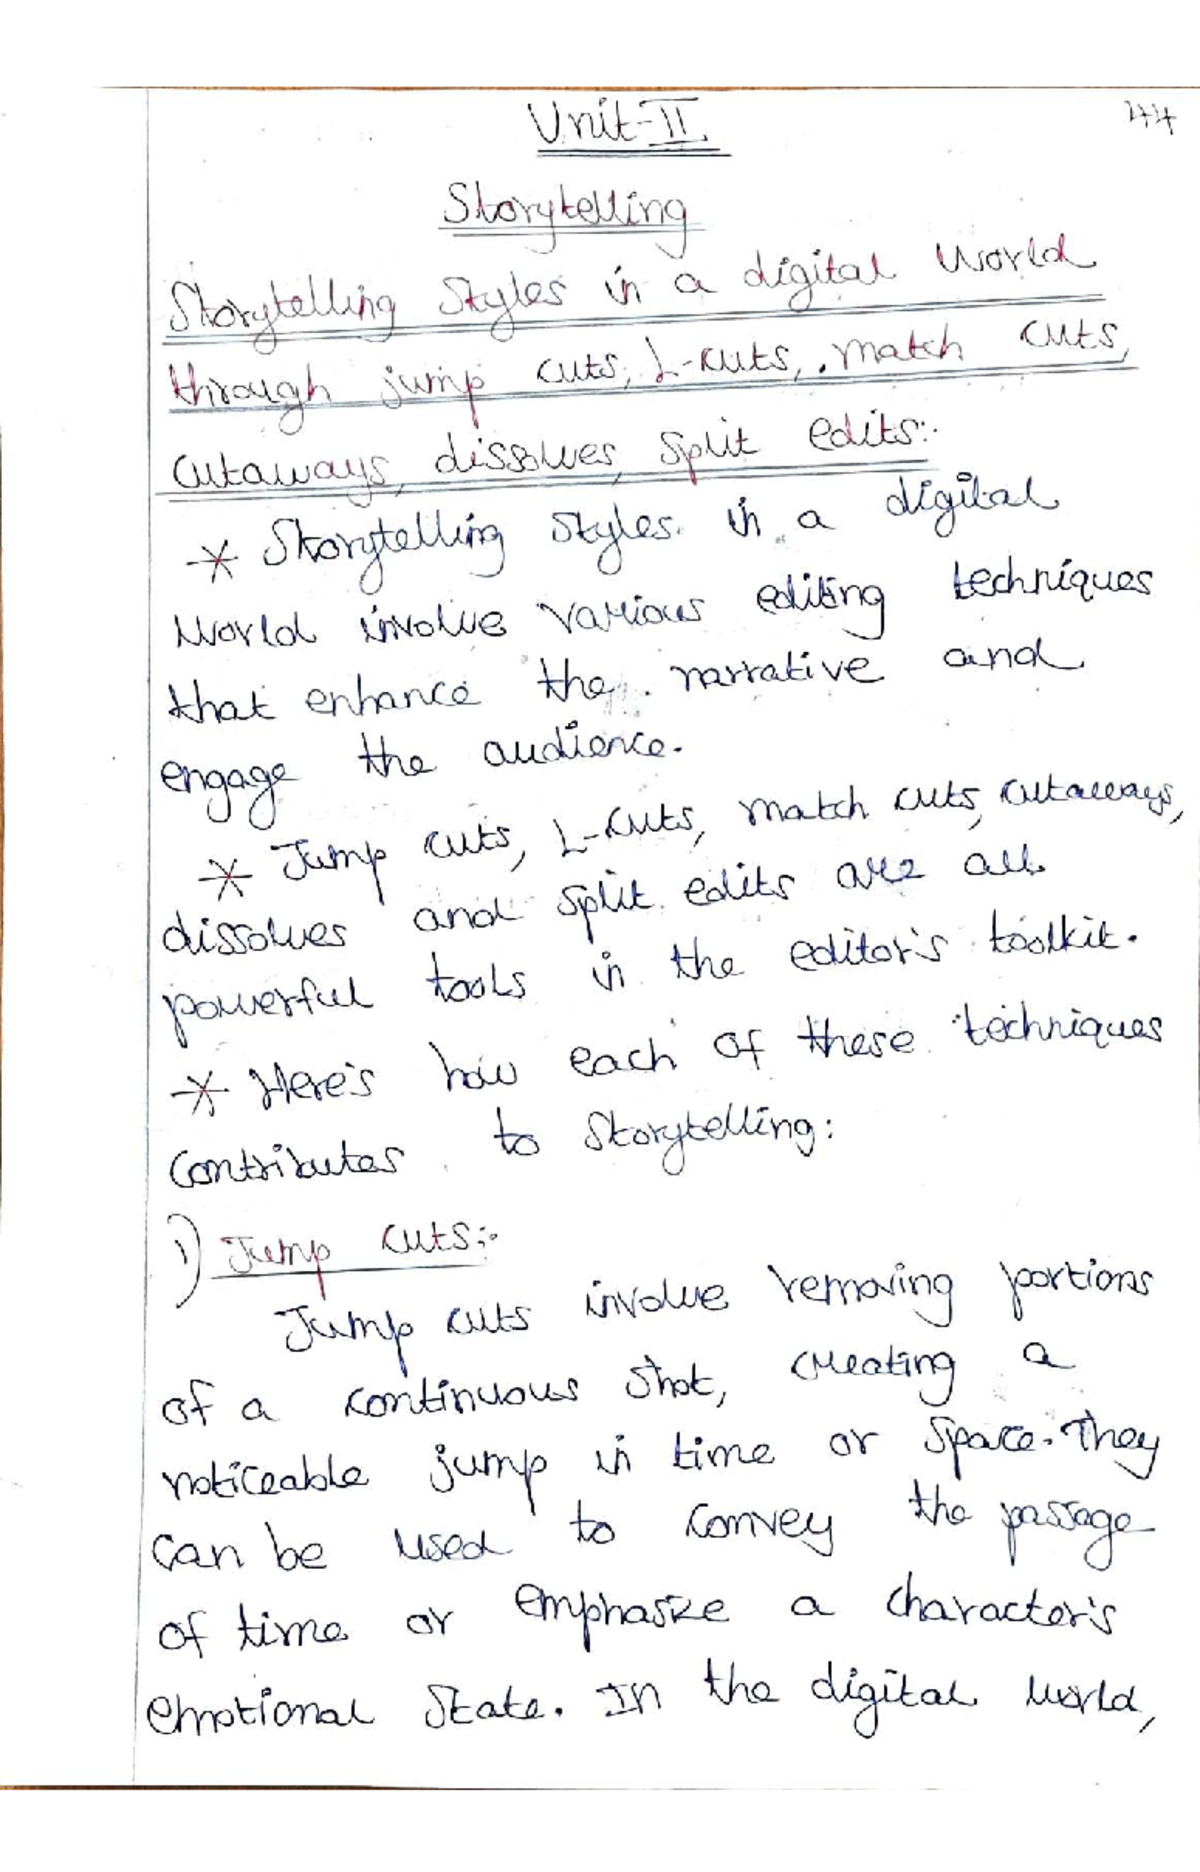 Unit-II
44
Storytelling
Storytelling Styles in a digital World
through jump cuts, L-cuts, match cuts,
cutaways, dissolves, split edits:-
* Storytelling styles in a digital
World involve various editing techniques
that enhance the narrative and
engage the audience.
* Jump cuts, L-cuts, match cuts, cutaways,
dissolves and split edits are all
powerful tools in the editor's toolkit.
* Here's how each of these techniques
contributes to storytelling:
i) Jump cuts:-
Jump cuts involve removing portions
of a continuous shot, creating a
noticeable jump in time or space. They
can be used to convey the passage
of time or emphasize a character's
emotional state. In the digital world,